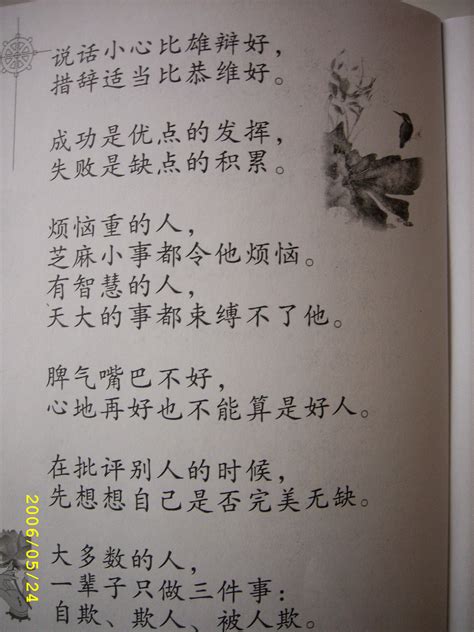 说话小心比雄辩好，
措辞适当比恭维好。
成功是优点的发挥，
失败是缺点的积累。
烦恼重的人，
芝麻小事都令他烦恼。
有智慧的人，
天大的事都束缚不了他。
脾气嘴巴不好，
心地再好也不能算是好人。
在批评别人的时候，
先想想自己是否完美无缺。
大多数的人，
一辈子只做三件事：
自欺、欺人、被人欺。
2006/05/24